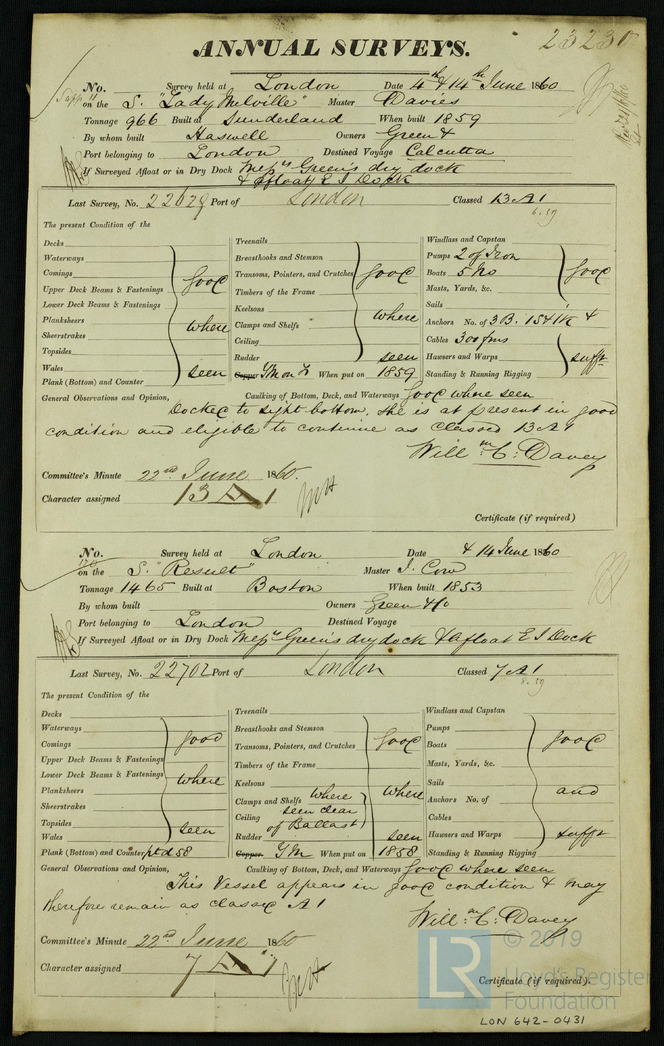 23230
ANNUAL SURVEYS.
No. Survey held at London Date 4th & 14th June 1860
on the S. "Lady Melville" Master Davies
Tonnage 966 Built at Sunderland When built 1859
By whom built Haswell Owners Green &
Port belonging to London Destined Voyage Calcutta
If Surveyed Afloat or in Dry Dock Messrs Green's dry dock
& afloat E I Dock
Last Survey, No. 22629 Port of London Classed 13 A1
6.59
The present Condition of the
Decks
Waterways
Comings
Upper Deck Beams & Fastenings
Lower Deck Beams & Fastenings
Planksheers
Sheerstrakes
Topsides
Wales
Plank (Bottom) and Counter
good
where
seen
Treenails
Breasthooks and Stemson
Transoms, Pointers, and Crutches
Timbers of the Frame
Keelsons
Clamps and Shelfs
Ceiling
Rudder
good
where
seen
Copper YM on F When put on 1859
Windlass and Capstan
Pumps 2 of Iron
Boats 5 No
Masts, Yards, &c.
Sails
Anchors No. of 3 B. 1S 41K &
Cables 300 fms
Hawsers and Warps
Standing & Running Rigging
good
sufft
General Observations and Opinion, Caulking of Bottom, Deck, and Waterways good where seen
Docked to sight bottom. She is at present in good
condition and eligible to continue as classed 13 A1
Willm C: Davey
Committee's Minute 22nd June 1860.
Character assigned 13 A 1
Certificate (if required)
No. Survey held at London Date & 14 June 1860
on the S. "Result" Master I. Cow
Tonnage 1465 Built at Boston When built 1853
By whom built Owners Green & Co
Port belonging to London Destined Voyage
If Surveyed Afloat or in Dry Dock Messrs Green's dry dock & afloat E I Dock
Last Survey, No. 22702 Port of London Classed 7 A1
8.59
The present Condition of the
Decks
Waterways
Comings
Upper Deck Beams & Fastenings
Lower Deck Beams & Fastenings
Planksheers
Sheerstrakes
Topsides
Wales
Plank (Bottom) and Counter ptd 58
good
where
seen
Treenails
Breasthooks and Stemson
Transoms, Pointers, and Crutches
Timbers of the Frame
Keelsons
Clamps and Shelfs where
Ceiling seen clear
of Ballast
Rudder
good
where
seen
Copper YM When put on 1858
Windlass and Capstan
Pumps
Boats
Masts, Yards, &c.
Sails
Anchors No. of
Cables
Hawsers and Warps
Standing & Running Rigging
good
and
sufft
General Observations and Opinion, Caulking of Bottom, Deck, and Waterways good where seen
This Vessel appears in good condition & may
therefore remain as classed A 1
Willm C: Davey
Committee's Minute 22nd June 1860
Character assigned 7 A 1
Certificate (if required).
LR © 2019
Lloyd's Register
Foundation
LON 642-0431